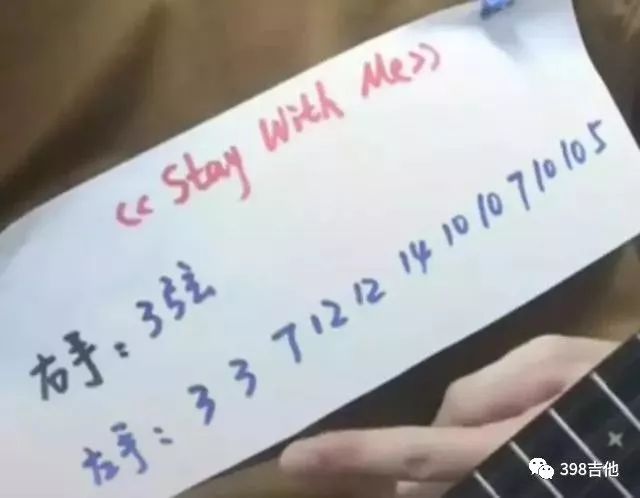 <<Stay With Me>>
右手：3弦
左手：3 3 7 12 12 14 10 10 7 10 10 5
398吉他